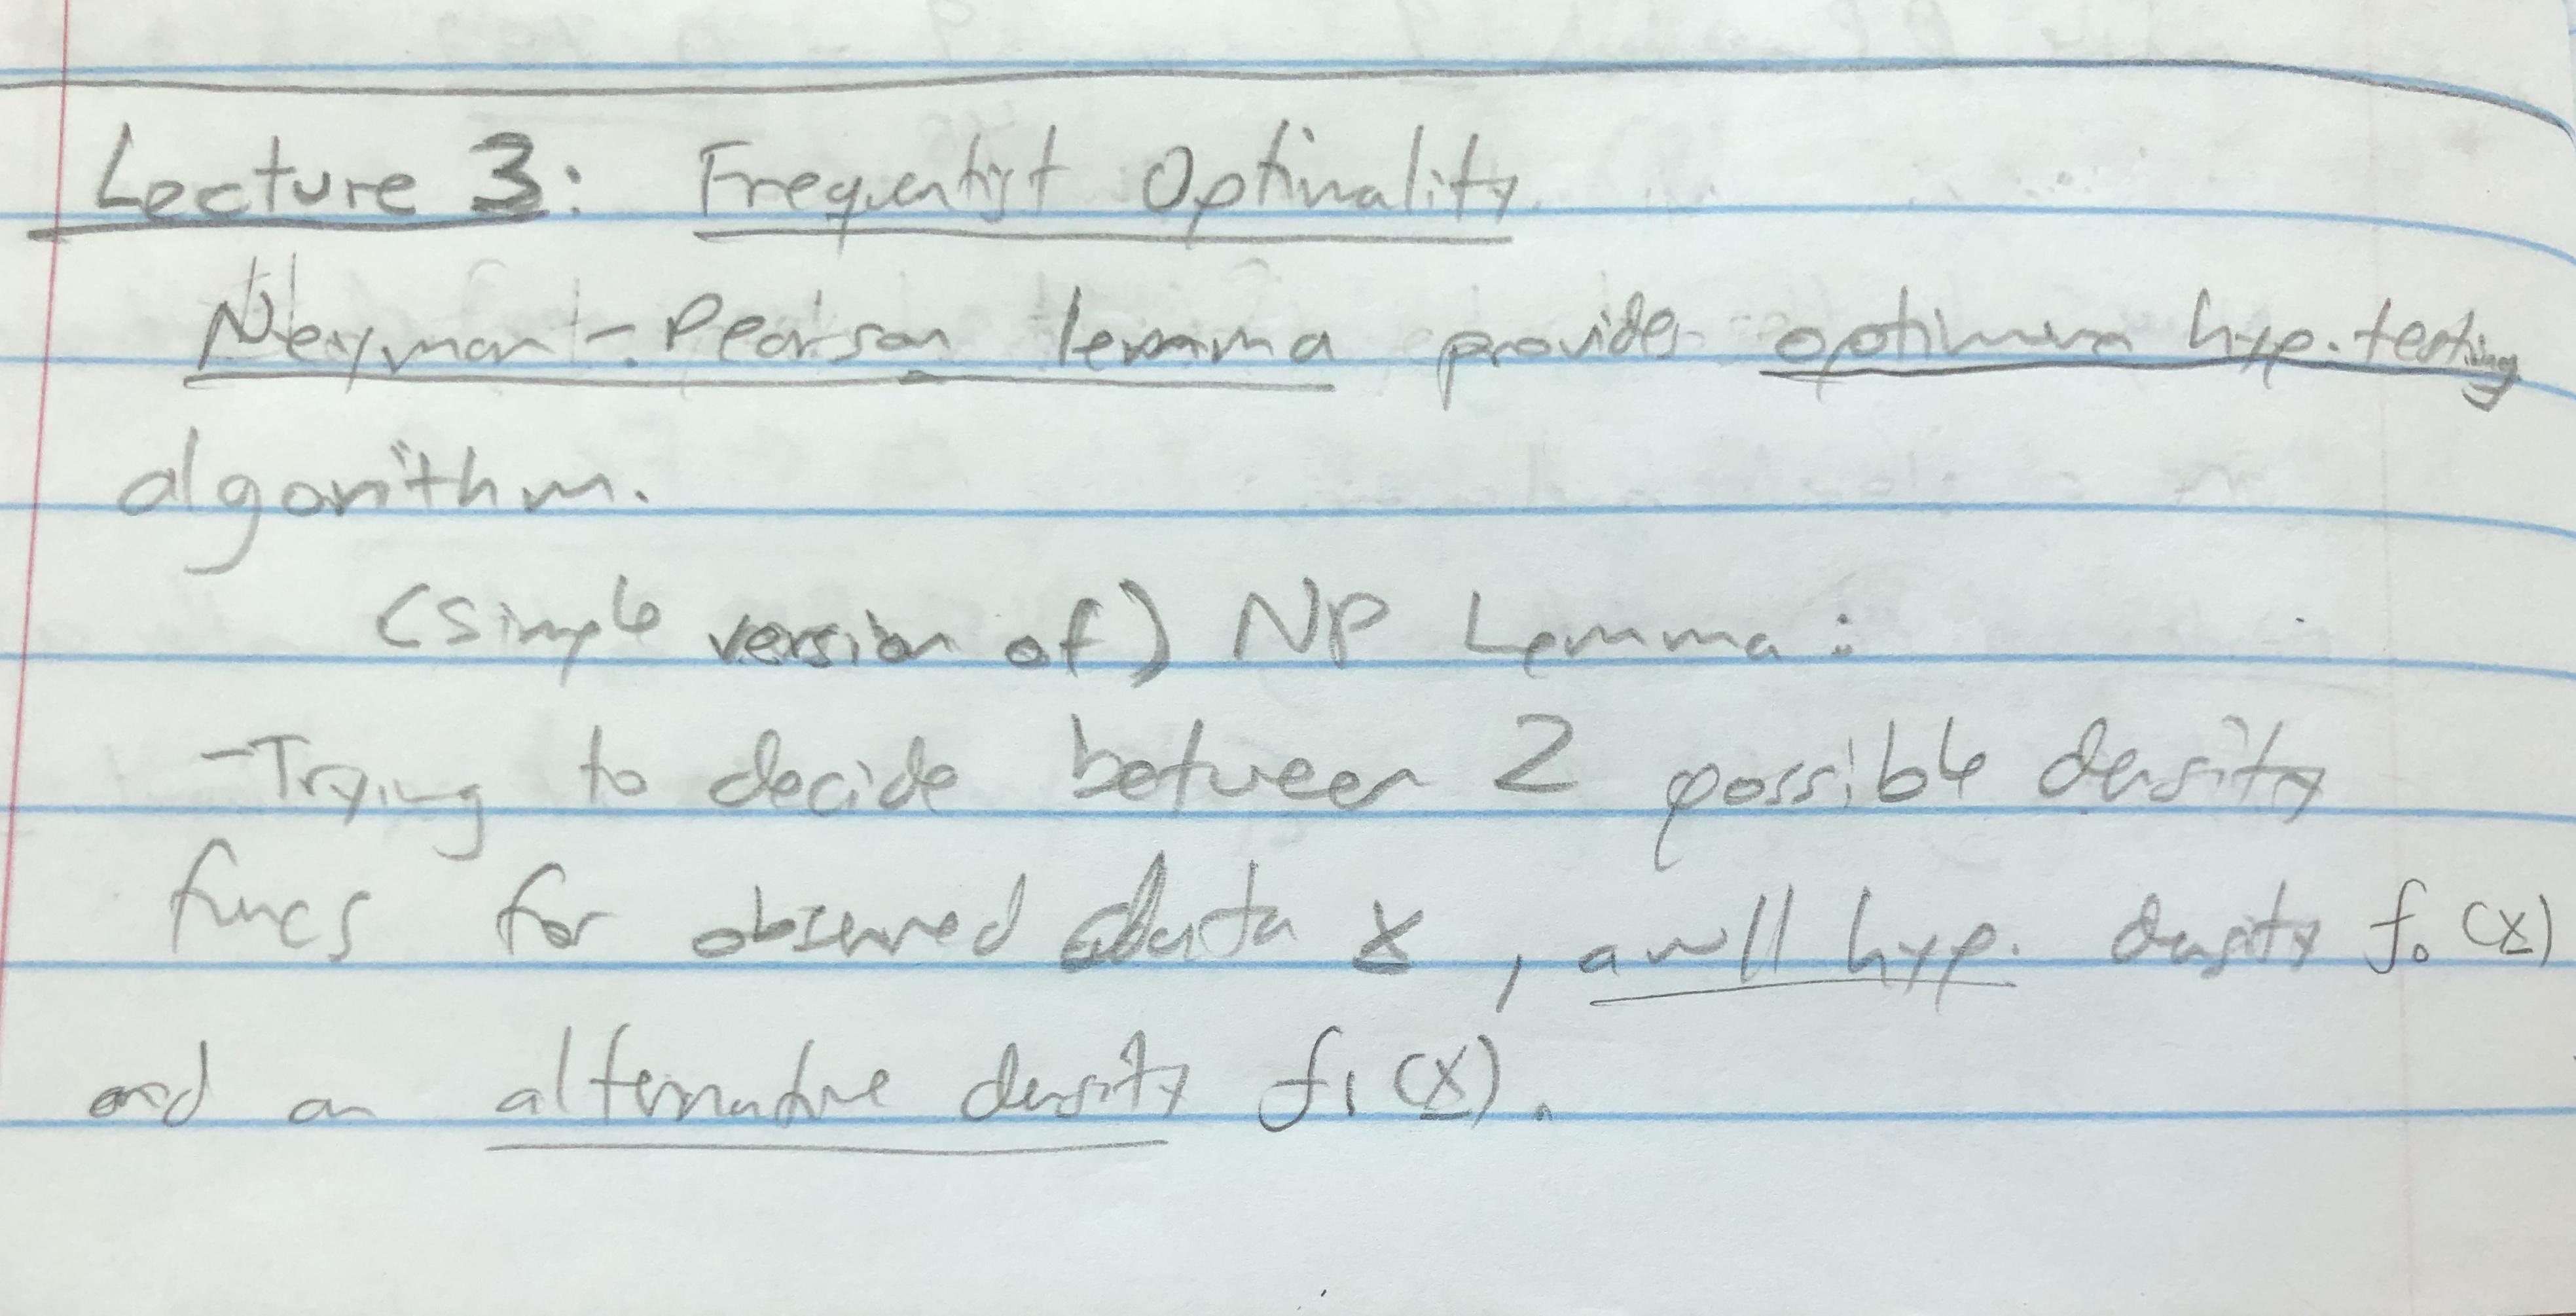 Lecture 3: Frequentist Optimality
Neyman-Pearson lemma provides optimum hyp. testing
algorithm.
(simple version of) NP Lemma:
-Trying to decide between 2 possible density
funcs for observed data x, a null hyp. density f₀(x)
and an alternative density f₁(x).